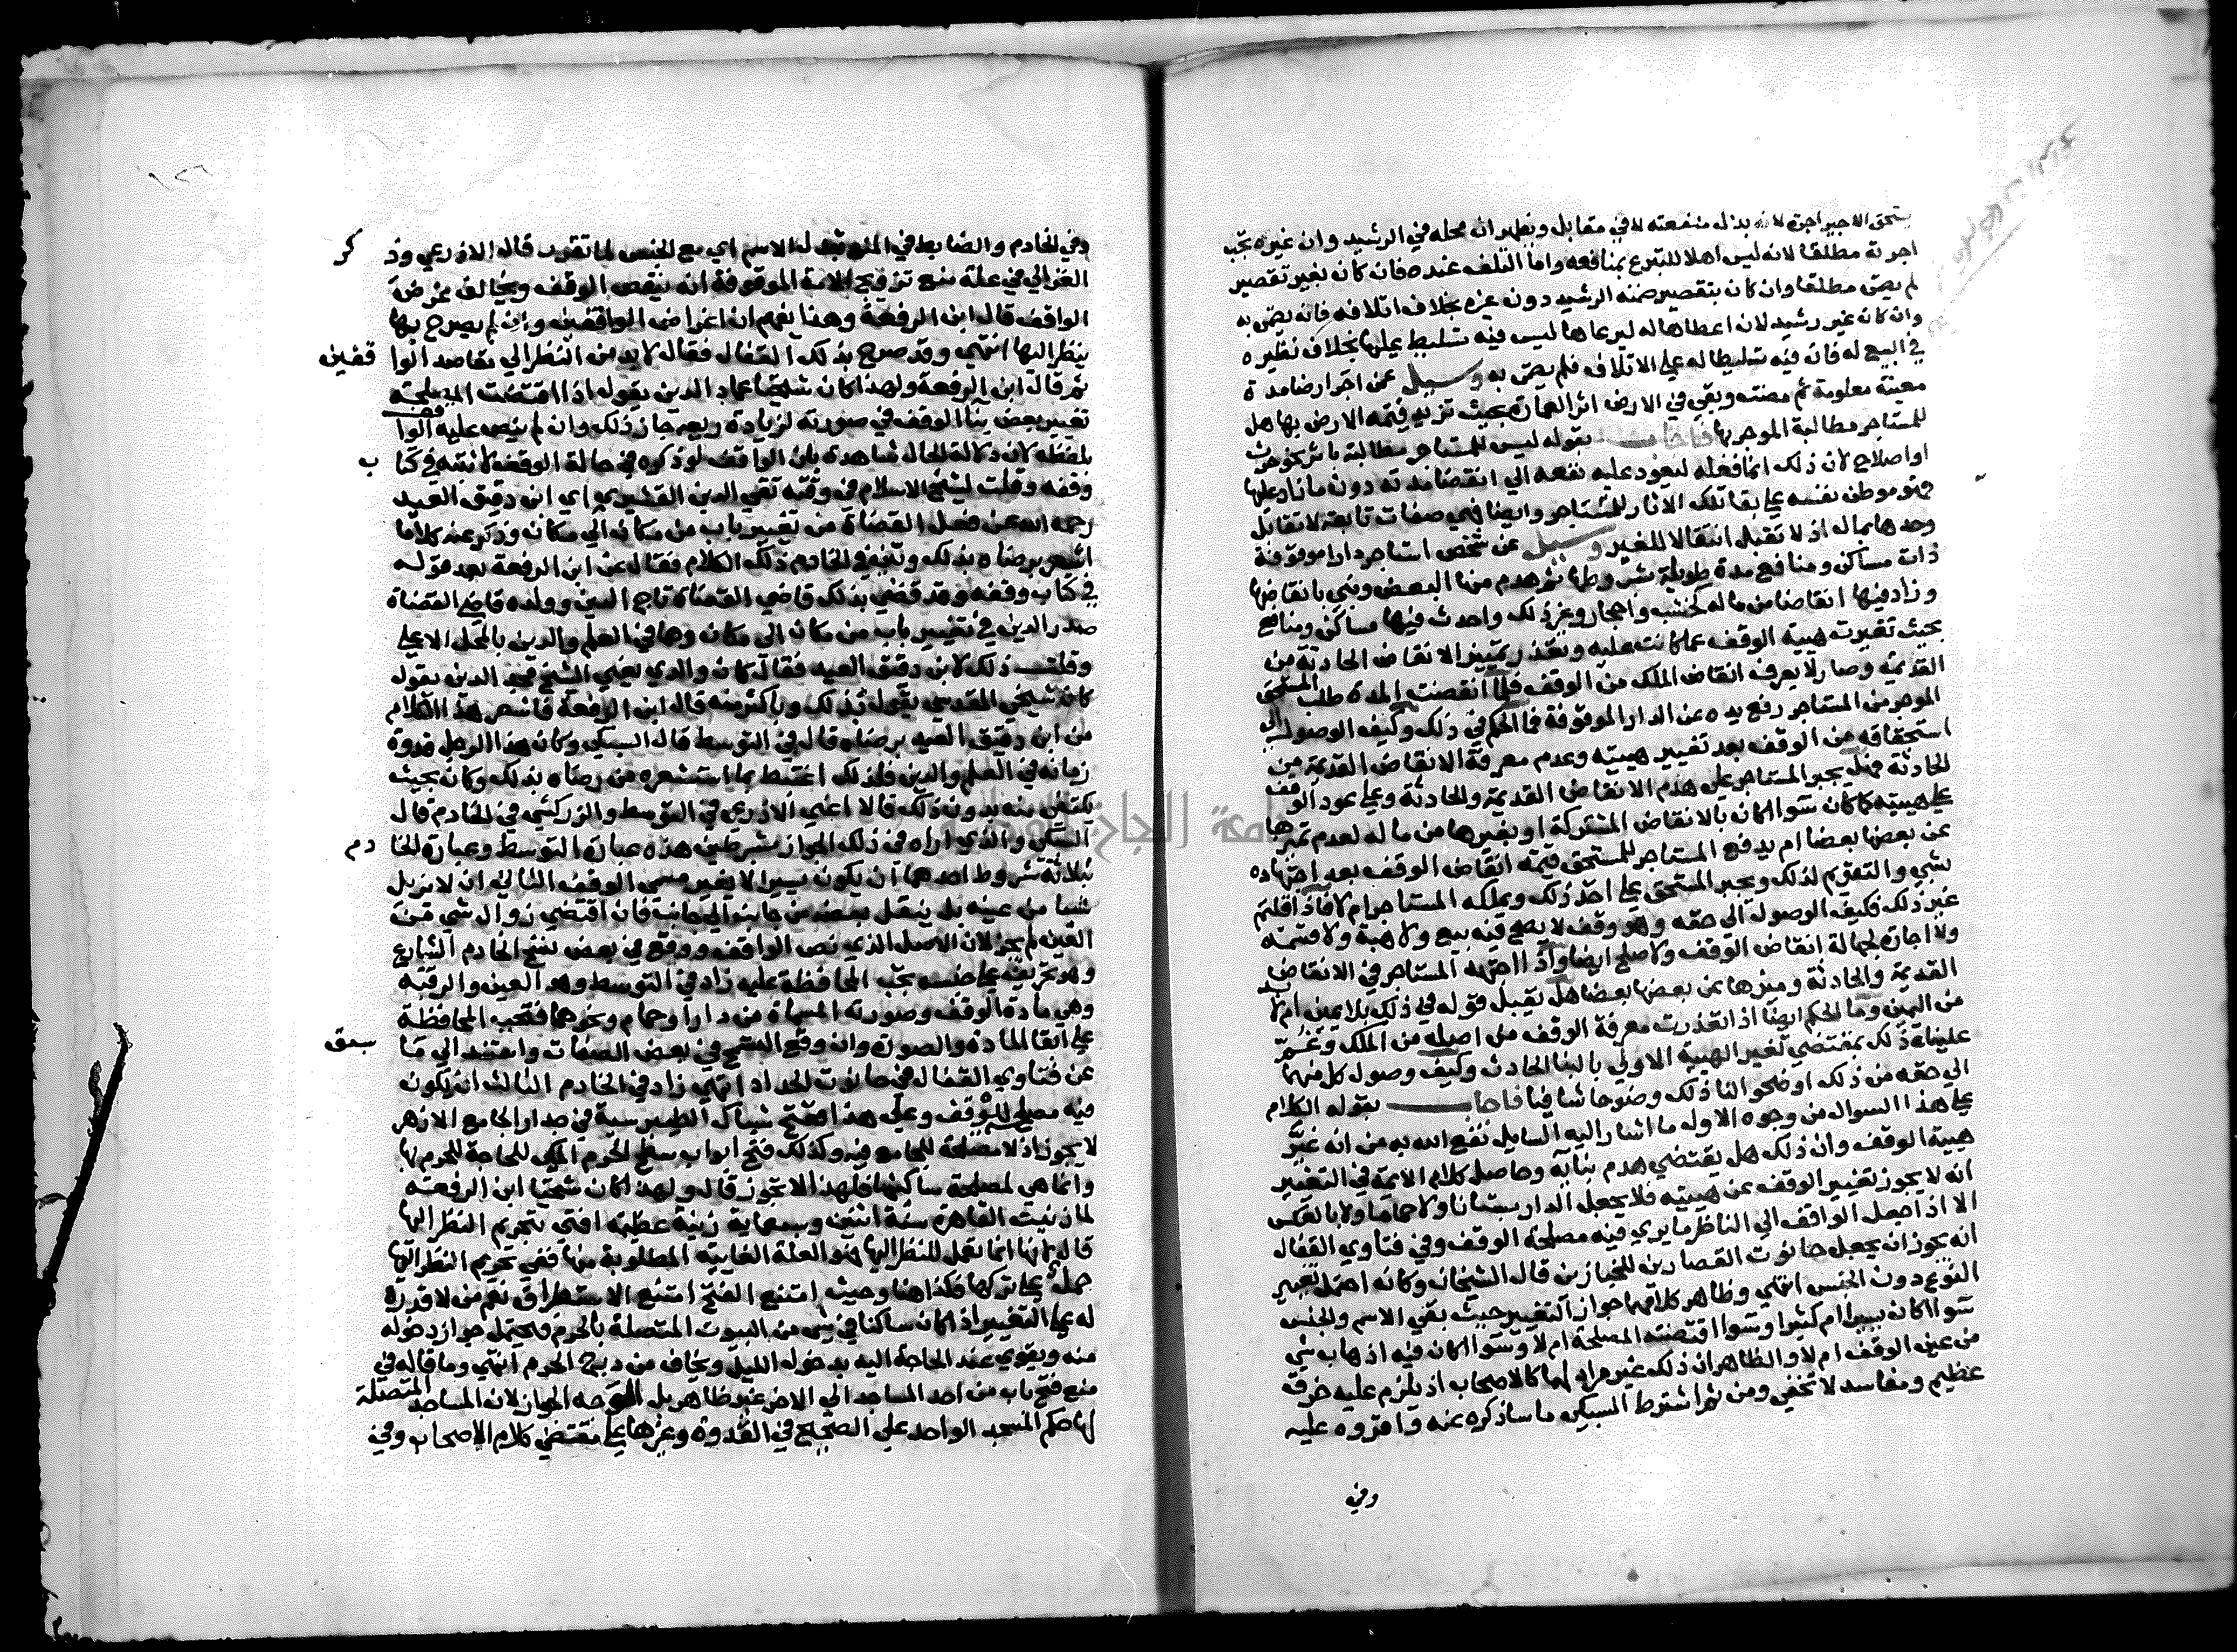 يستحق الاجير اجرة لانه بذل منفعته لا في مقابل ويظهر ان محله في الرشيد وان غيره تجب
اجرته مطلقا لانه ليس اهلا للتبرع بمنافعه واما التلف عنده فان كان بغير تقصير
لم يضمن مطلقا وان كان بتقصير ضمنه الرشيد دون غيره بخلاف اتلافه فانه يضمن به
وان كان غير رشيد لان اعطاها له ليرعاها ليس فيه تسليط عليها بخلاف نظيره
في البيع له فان فيه تسليطا له علي الاتلاف فلم يضمن به وسيل عمن اجر ارضا مدة
معينة معلومة ثم مضت وبقي في الارض اثر العمارة بحيث تزيد قيمة الارض بها هل
للمستاجر مطالبة الموجر بها فاجاب بقوله ليس للمستاجر مطالبة باثر نحو حرث
او اصلاح لان ذلك انما فعله ليعود عليه نفعه الي انقضا مدته دون ما زاد عليها
فهو موطن نفسه علي بقا تلك الاثار للمستاجر وايضا فهي صفات تابعة لا تقابل
وحدها بمال اذ لا تقبل انتقالا للغير وسيل عن شخص استاجر دارا موقوفة
ذات مساكن ومنافع مدة طويلة بشروطها ثم هدم منها البعض وبني بانقاضها
وزاد فيها انقاضا من ماله كخشب واحجار وغير ذلك واحدث فيها مساكن ومنافع
بحيث تغيرت هيية الوقف عما كانت عليه وتعذر تمييز الانقاض الحادثة من
القديمة وصار لا يعرف انقاض الملك من الوقف فلما انقضت المدة طلب المستحق
الموجر من المستاجر رفع يده عن الدار الموقوفة فما الحكم في ذلك وكيف الوصول الي
استحقاقه من الوقف بعد تغيير هييته وعدم معرفة الانقاض القديمة من
الحادثة فهل يجبر المستاجر علي هدم الانقاض القديمة والحادثة وعلي عود الوقف
علي هييته كما كان سوا اكان بالانقاض المشتركة او بغيرها من ماله لعدم تميزها
عن بعضها بعضا ام يدفع المستاجر للمستحق قيمة انقاض الوقف بعد اجتهاده
بشي والتقويم لذلك ويجبر المستحق علي اخذ ذلك ويملكه المستاجر ام لا فاذا قلتم
غير ذلك فكيف الوصول الي حقه وهو وقف لا يصح فيه بيع ولا هبة ولا قسمة
ولا اجارة لجهالة انقاض الوقف ولا صلح ايضا واذا اجتهد المستاجر في الانقاض
القديمة والحادثة وميزها عن بعضها بعضا هل يقبل قوله في ذلك بلا يمين ام لا بد
من اليمين وما الحكم ايضا اذا تعذرت معرفة الوقف من اصله من الملك وعُسّر
علينا ذلك بمقتضي تغير الهيية الاولي بالبنا الحادث وكيف وصول كل منهما
الي حقه من ذلك اوضحوا لنا ذلك وضوحا شافيا فاجاب بقوله الكلام
علي هذا السوال من وجوه الاول ما اشار اليه السايل نفع الله به من انه غيّر
هيية الوقف وان ذلك هل يقتضي هدم بنايه وحاصل كلام الايمة في التغيير
انه لا يجوز تغيير الوقف عن هييته فلا يجعل الدار بستانا ولا حماما ولا بالعكس
الا اذا جعل الواقف الي الناظر ما يري فيه مصلحة الوقف وفي فتاوي القفال
انه يجوز ان يجعل حانوت القصارين للخبازين قال الشيخان وكانه احتمل تغيير
النوع دون الجنس انتهي وظاهر كلامهما جواز التغيير حيث بقي الاسم والجنس
سوا اكان يسيرا ام كثيرا وسوا اقتضته المصلحة ام لا وسوا اكان فيه اذهاب شي
من عين الوقف ام لا والظاهر ان ذلك غير مراد لهما كالاصحاب اذ يلزم عليه خرق
عظيم ومفاسد لا تخفي ومن ثم اشترط السبكي ما ساذكره عنه واقروه عليه
وفي
وفي الخادم والضابط في المنع تبدل الاسم اي مع الجنس لما تقرر قال الاذرعي وذكر
الغزالي في علة منع تزويج الامة الموقوفة انه ينقص الوقف ويخالف غرض
الواقف قال ابن الرفعة وهذا يفهم ان اغراض الواقفين وان لم يصرح بها
ينظر اليها انتهي وقد صرح بذلك القفال فقال لا بد من النظر الي مقاصد الواقفين
ثم قال ابن الرفعة ولهذا كان شيخنا عماد الدين يقول اذا اقتضت المصلحة
تغيير بعض بنا الوقف في صورته لزيادة ريعه جاز ذلك وان لم ينص عليه الواقف
بلفظه لان دلالة الحال شاهدة بان الواقف لو ذكره في حالة الوقف لاثبته في كتاب
وقفه وقلت لشيخ الاسلام في وقته تقي الدين القشيري اي ابن دقيق العيد
رحمه الله عن فعل القضاة من تغيير باب من مكان الي مكان وذكر عنه كلاما
اشعر برضاه بذلك وتبعه في الخادم ذلك الكلام فقال عن ابن الرفعة بعد قوله
في كتاب وقفه وقد قضي بذلك قاضي القضاة تاج الدين وولده قاضي القضاة
صدر الدين في تغيير باب من مكان الي مكان وهما في العلم والدين بالمحل الاعلي
وقلت ذلك لابن دقيق العيد فقال كان والدي يعني الشيخ مجد الدين يقول
كان شيخي المقدسي يقول بذلك وباكثر منه قال ابن الرفعة فاشعر هذا الكلام
من ابن دقيق العيد برضاه قال في التوسط قال السبكي وكان هذا الرجل قدوة
زمانه في العلم والدين فلذلك اغتبط بما استشعره من رضاه بذلك وكان بحيث
يكتفي منه بدون ذلك قالا اعني الاذرعي في التوسط والزركشي في الخادم قال
السبكي والذي اراه في ذلك الجواز بشرطين هذه عبارة التوسط وعبارة الخادم
بثلاثة شروط احدها ان يكون يسيرا لا يغير مسمي الوقف الثاني ان لا يزيل
شيا من عينه بل ينقل بعضه من جانب الي جانب فان اقتضي زوال شي من
العين لم يجز لان الاصل الذي نص الواقف ووقع في بعض نسخ الخادم الشارع
وهو تحريف علي حبسه يجب المحافظة عليه زاد في التوسط وهو العين والرقبة
وهي مادة الوقف وصورته المسماة من دار او حمام ونحوهما فتجب المحافظة
علي ابقا المادة والصورة وان وقع التسمح في بعض الصفات واستند الي ما سبق
عن فتاوي القفال في حانوت الحداد انتهي زاد في الخادم الثالث ان يكون
فيه مصلحة للوقف وعلي هذا ففتح شباك الطيبرسية في جدار الجامع الازهر
لا يجوز اذ لا مصلحة للجامع فيه وكذلك فتح ابواب سطح الحرم المكي لا حاجة للحرم بها
وانما هي لمصلحة ساكنيها فلهذا لا يجوز قال ولهذا كان شيخنا ابن الرفعة
لما زينت القاهرة سنة اثنين وسبعماية زينة عظيمة افتي بتحريم النظر اليها
قال لانها انما تعمل للنظر اليها فهو العلة الغايية المطلوبة منها ففي تحريم النظر اليها
حمل علي تركها فكذا هنا وحيث امتنع الفتح امتنع الاستطراق نعم من لا قدرة
له علي التغيير اذا كان ساكنا في شي من البيوت المتصلة بالحرم فيحتمل جواز دخوله
منه ويقوي عند الحاجة اليه بدخول الليل ويخاف من دبرح الحرم انتهي وما قاله في
منع فتح باب من احد المساجد الي الاخر غير ظاهر بل الاوجه الجواز لان المساجد المتصلة
لها حكم المسجد الواحد علي الصحيح في القدوة وغيرها علي مقتضي كلام الاصحاب وفي